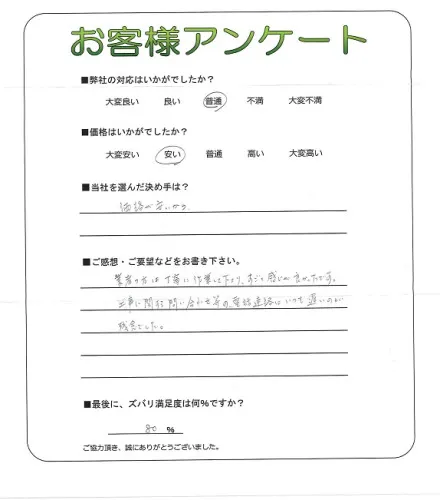 お客様アンケート
■弊社の対応はいかがでしたか？
大変良い 良い 普通 不満 大変不満
■価格はいかがでしたか？
大変安い 安い 普通 高い 大変高い
■当社を選んだ決め手は？
価格が安いから
■ご感想・ご要望などをお書き下さい。
業者の方は丁寧に作業して下さり、すごく感じが良かったです。
工事に関する問い合わせ等の電話連絡はいつも遅いのが
残念でした。
■最後に、ズバリ満足度は何%ですか？
80 %
ご協力頂き、誠にありがとうございました。